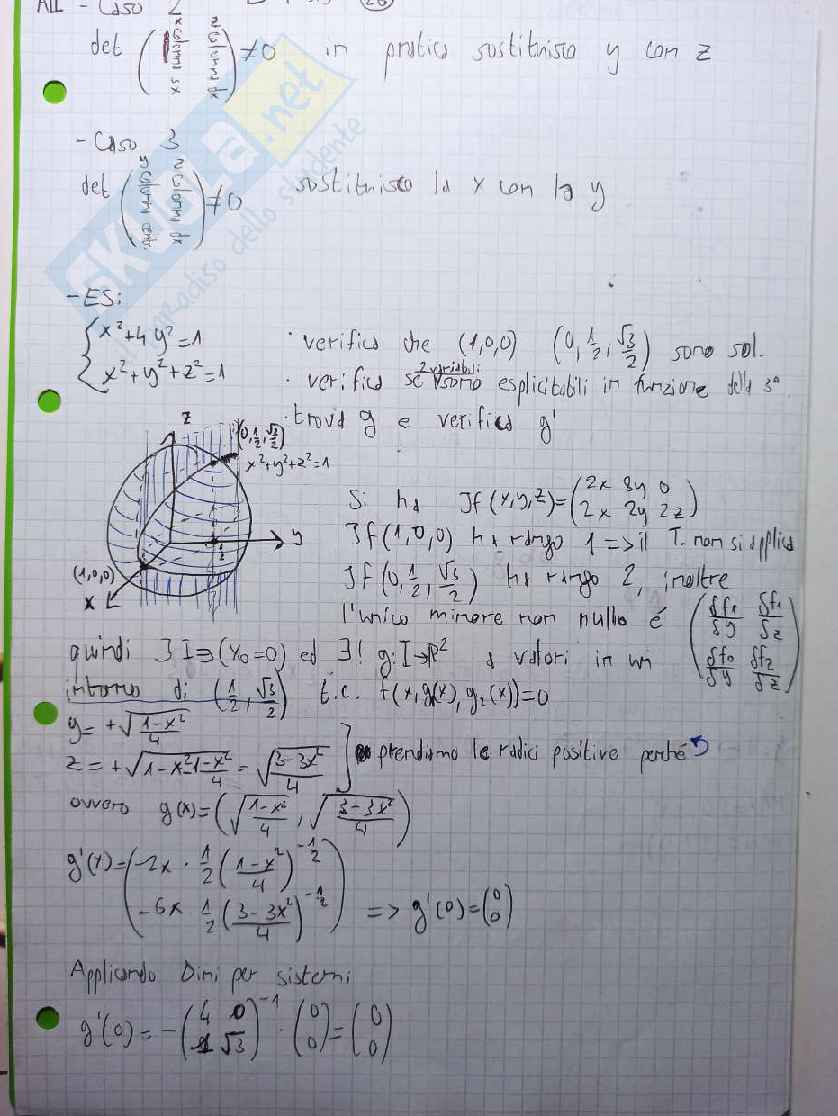 ALL - Caso 2
det (x colonna sx z colonna dx) ≠0 in pratica sostituisco y con z
- Caso 3
det (y colonna z colonna dx) ≠0 sostituisco la x con la y
skuola.net
il paradiso dello studente
- ES:
{ x²+4y²=1
{ x²+y²+z²=1
· verifica che (1,0,0) (0,1/2,√3/2) sono sol.
· verifica se 2 variabili sono esplicitabili in funzione della 3ª
· trova g e verifica g'
z
(0,1/2,√3/2)
x²+y²+z²=1
y
(1,0,0)
x
Si ha Jf(x,y,z)=(2x 8y 0
2x 2y 2z)
Jf(1,0,0) ha rango 1 => il T. non si applica
Jf(0,1/2,√3/2) ha rango 2, inoltre
l'unico minore non nullo é (δf1/δy δf1/δz
δf0/δy δf2/δz)
quindi ∃ I∋(x0=0) ed ∃! g:I→R² a valori in un
intorno di (1/2,√3/2) t.c. f(x,g(x),g2(x))=0
y=+√(1-x²/4)
z=+√(1-x²-1-x²/4) = √(3-3x²/4) ] prendiamo le radici positive perché
ovvero g(x)=(√(1-x²/4), √(3-3x²/4))
g'(x)=(-2x · 1/2 (1-x²/4)^-1/2
-6x 1/2 (3-3x²/4)^-1/2) => g'(0)=(0 0)
Applicando Dini per sistemi
g'(0)=-(4 0
1 √3)^-1 · (0 0)=(0 0)